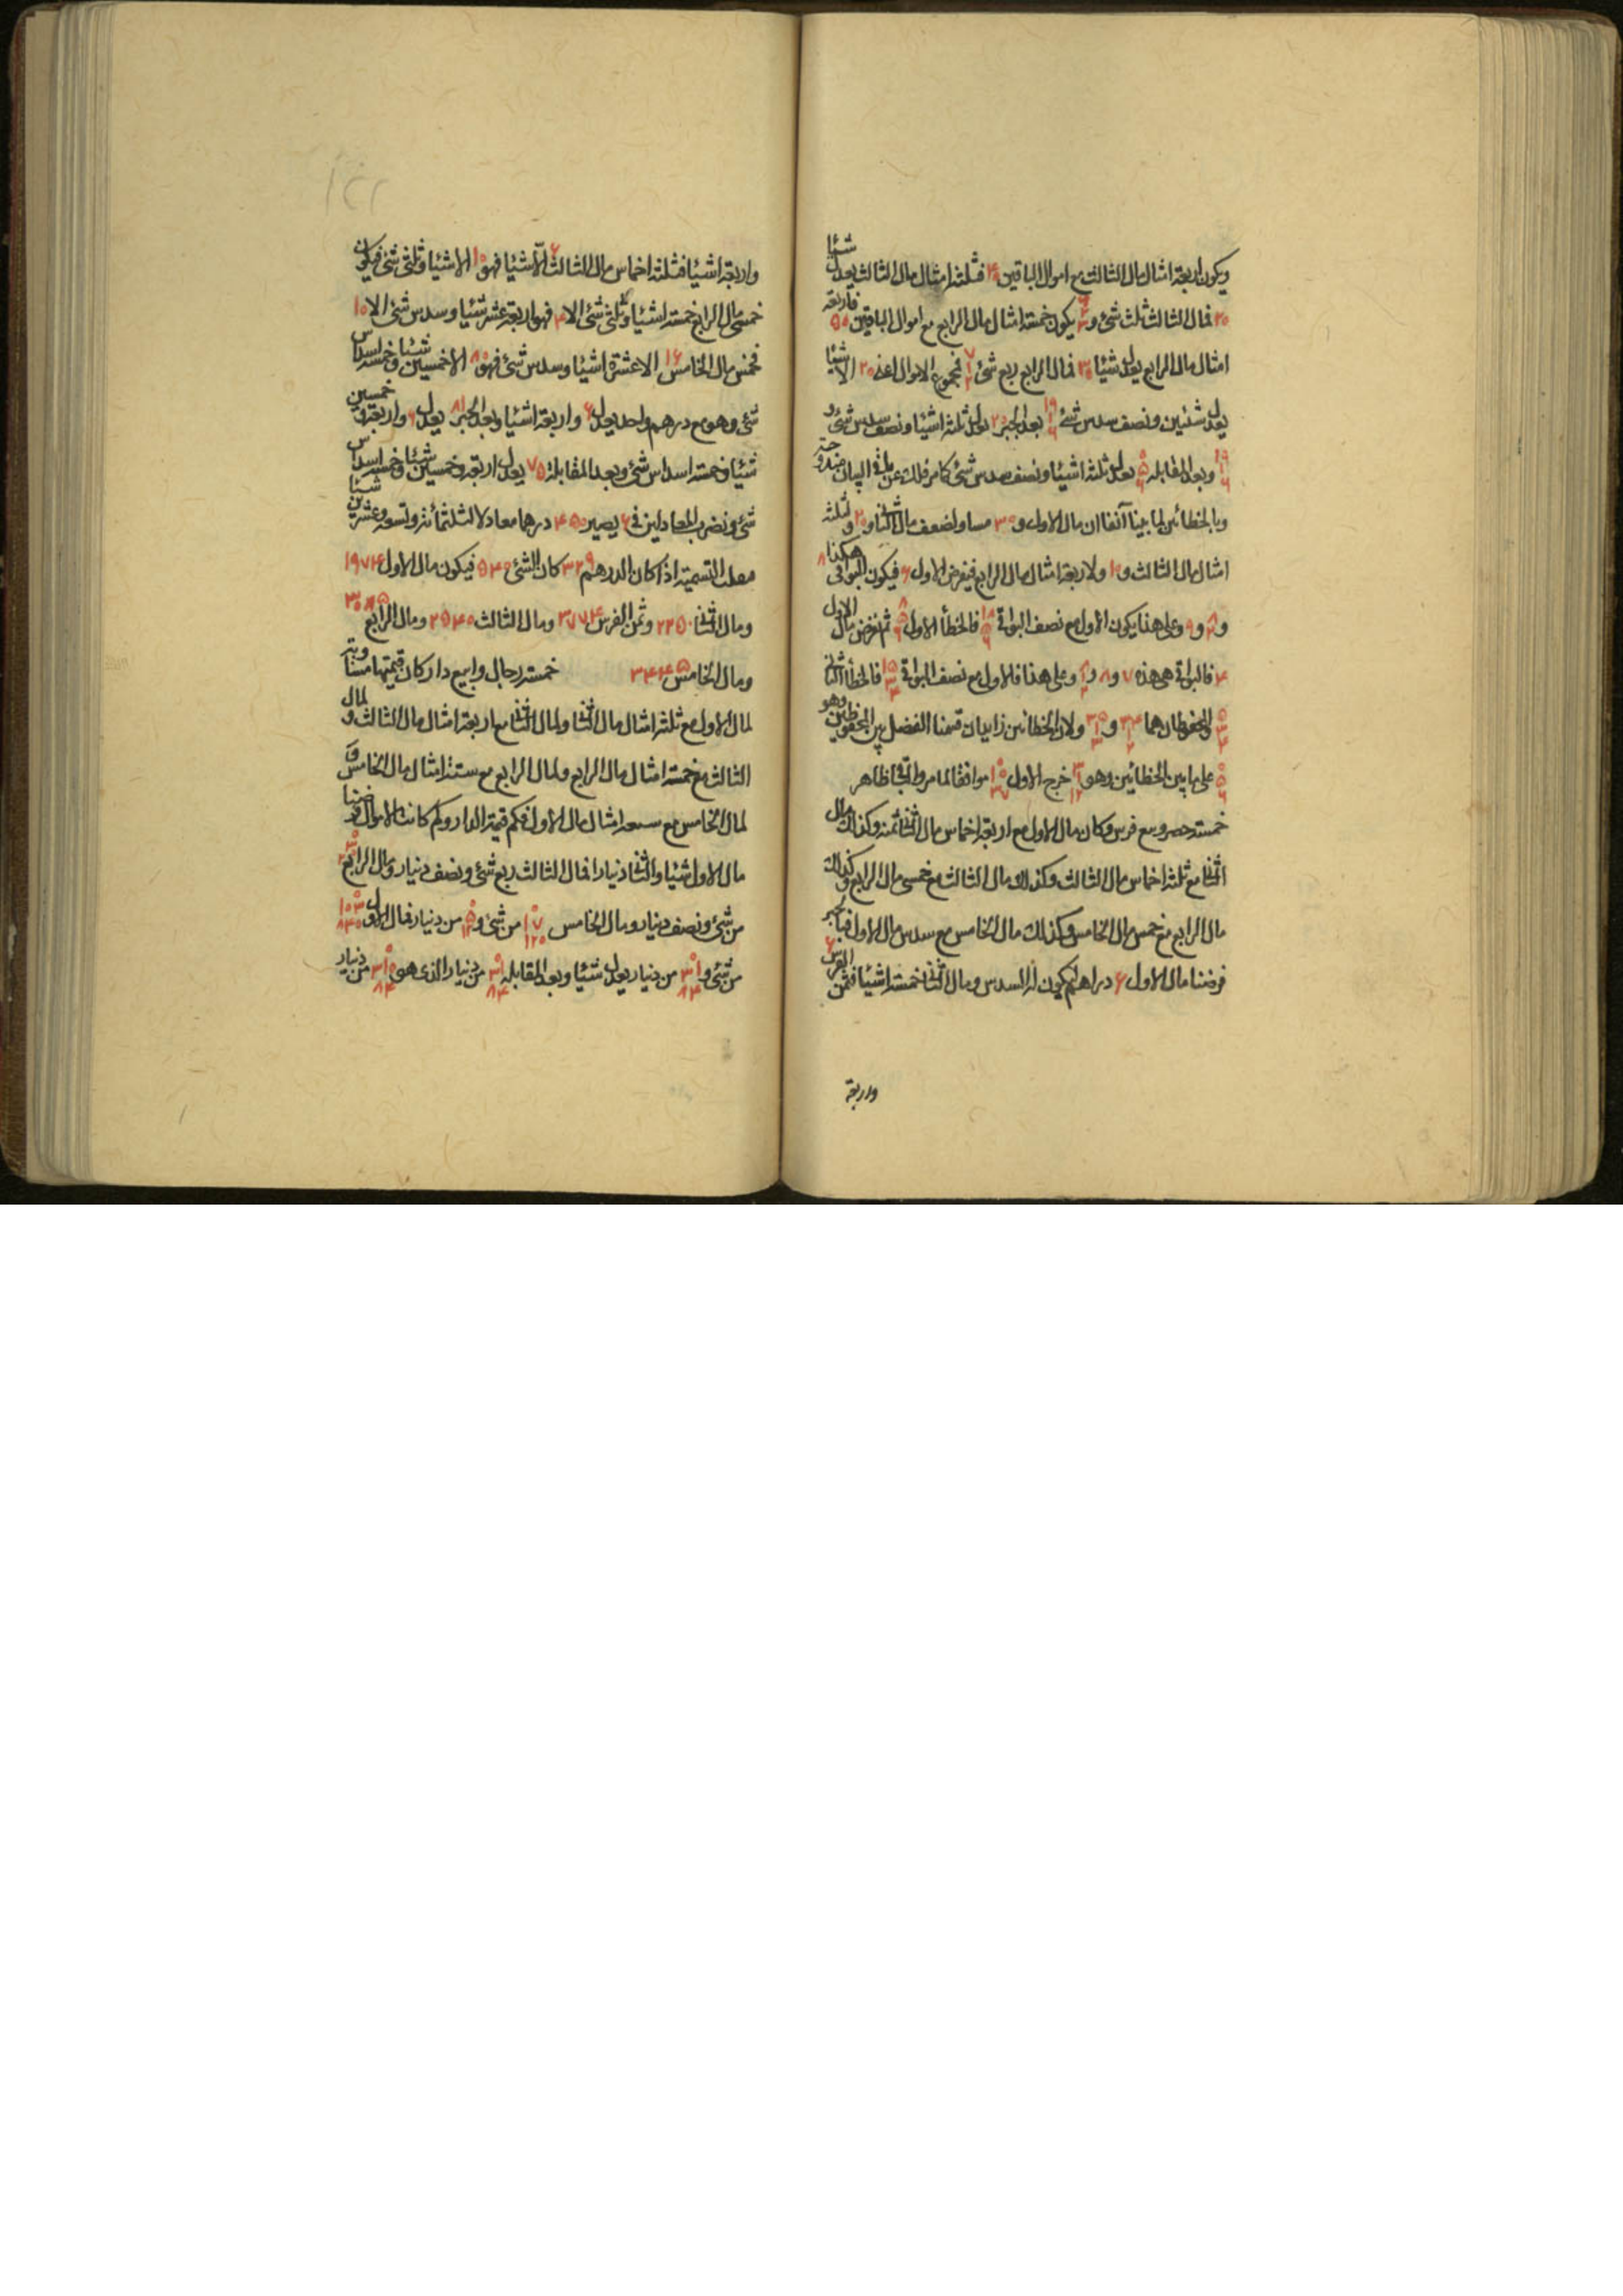 ويكون اربعة امثال مال الثالث مع اموال الباقين فثلثة امثال مال الثالث يعدل شيئا
۲۰ فمال الثالث ثلث شئ و يكون خمسة امثال مال الرابع مع اموال الباقين ۵۰ فاربعة
امثال مال الرابع يعدل شيئا فمال الرابع ربع شئ فمجموع الاموال اعنى ۲۰ الا شيئا
يعدل شيئين ونصف سدس شئ بعد الجبر يعدل ثلثة اشياء ونصف سدس شئ و
وبعد المقابلة يعدل ثلثة اشياء ونصف سدس شئ كما مر فلك عن باقى البيان
وبالخطائين لما بينا آنفا ان مال الاول و ۳۰ مساو لضعف مال الثانى و ۲۰ ولثلثة
امثال مال الثالث و ۱۰ ولاربعة امثال مال الرابع فيفرض الاول ۶ فيكون البواقى هكذا ۸
و و ۹ وعلى هذا يكون الاول مع نصف البواقى فالخطأ الاول ثم نفرض مال الاول
۴ فالبواقى هى هذه ۷ و ۸ و وعلى هذا فالاول مع نصف البواقى فالخطأ الثانى
والمحفوظان هما و ولان الخطائين زايدان قسمنا الفضل بين المحفوظين وهو
على ما بين الخطائين وهو خرج الاول موافقا لما مر والباقى ظاهر
خمسة حضروا بيع فرس وكان مال الاول مع اربعة اخماس مال الثانى ثمنه وكذلك مال
الثانى مع ثلثة اخماس مال الثالث وكذلك مال الثالث مع خمسى مال الرابع وكذلك
مال الرابع مع خمس مال الخامس وكذلك مال الخامس مع سدس مال الاول فبالجبر
فرضنا مال الاول ۶ دراهم ليكون له السدس ومال الثانى خمسة اشياء فثمن الفرس ۶
واربعة
واربعة اشياء فثلثة اخماس مال الثالث ۶ الا شيئا فهو ۱۰ الا شيئا وثلثى شئ فيكون
خمسى مال الرابع خمسة اشياء وثلثى شئ الا ۴ فهو اربعة عشر شيئا وسدس شئ الا ۱۰
فخمس مال الخامس ۱۶ الا عشرة اشياء وسدس شئ فهو ۸۰ الا خمسين شيئا وخمسة اسداس
شئ وهو مع درهم واحد يعدل ۶ واربعة اشياء وبعد الجبر ۸۱ يعدل ۶ واربعة وخمسين
شيئا وخمسة اسداس شئ وبعد المقابلة ۷۵ يعدل اربعة وخمسين شيئا وخمسة اسداس
شئ ونضرب المعادلين فى ۶ يصير ۴۵۰ درهما معادلا لثلثمائة وتسعة وعشرين شيئا
فعلى التسمية اذا كان الدرهم ۳۲۹ كان الشئ ۴۵۰ فيكون مال الاول ۱۹۷۴
ومال الثانى ۲۲۵۰ وثمن الفرس ۳۷۷۴ ومال الثالث ومال الرابع
ومال الخامس خمسة رجال وابيع دار كان قيمتها مساوية
لمال الاول مع ثلثة امثال مال الثانى ولمال الثانى مع اربعة امثال مال الثالث ولمال
الثالث مع خمسة امثال مال الرابع ولمال الرابع مع ستة امثال مال الخامس و
لمال الخامس مع سبعة امثال مال الاول فكم قيمة الدار وكم كانت الاموال فرضنا
مال الاول شيئا والثانى دينارا فمال الثالث ربع شئ ونصف دينار ومال الرابع
من شئ ونصف دينار ومال الخامس من شئ و من دينار فمال الاول
من شئ و من دينار يعدل شيئا وبعد المقابلة من دينار الذى هو من دينار